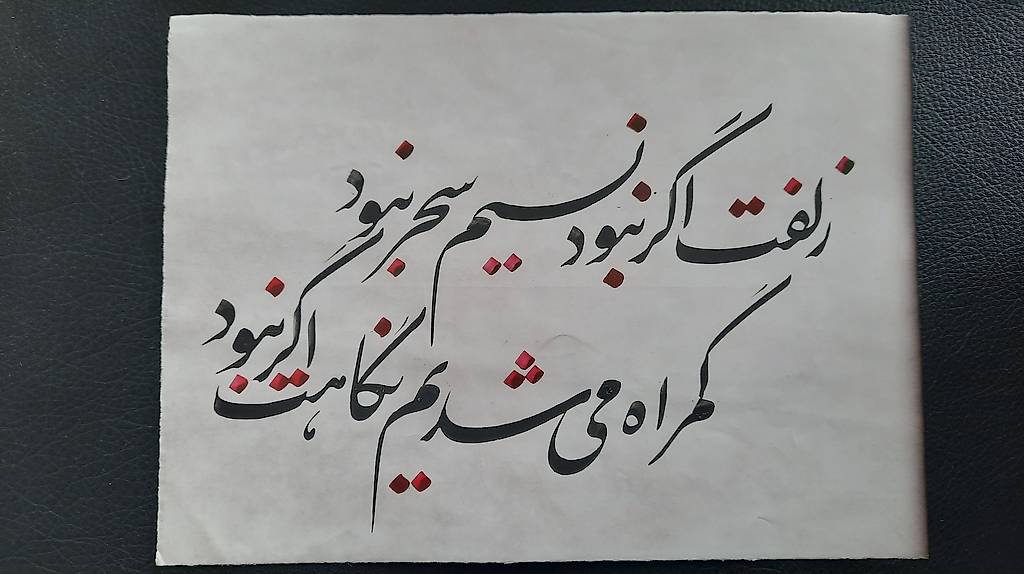 زلفت اگر نبود نسیم سحر نبود
گمراه می شدیم نگاهت اگر نبود